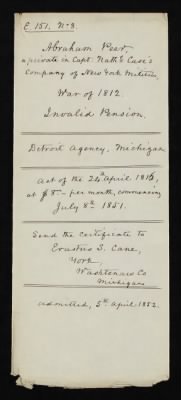 E. 151. No 3.
Abraham Peer,
a private in Capt. Nath'l Case's
Company of New York Militia,
War of 1812.
Invalid Pension.
Detroit Agency, Michigan
Act of the 24th April 1816,
at $8 - per month, commencing
July 8th 1851.
Send the certificate to
Erastus S. Cane,
York,
Washtenaw Co
Michigan
Admitted, 5th April 1852.